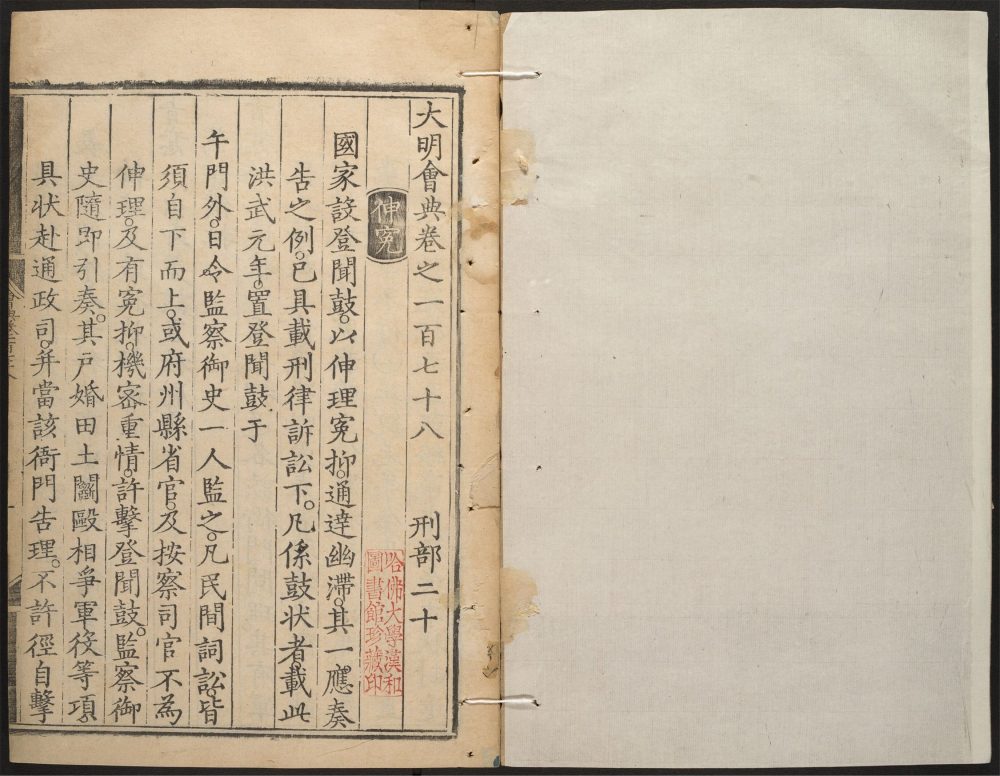 大明會典卷之一百七十八 刑部二十
伸寃
哈佛大學漢和
圖書館珍藏印
國家設登聞鼓。以伸理寃抑。通達幽滯。其一應奏
告之例。已具載刑律訴訟下。凡係鼓狀者。載此
洪武元年。置登聞鼓于
午門外。日令監察御史一人監之。凡民間詞訟。皆
須自下而上。或府州縣省官。及按察司官不為
伸理。及有寃抑。機密重情。許擊登聞鼓。監察御
史隨即引奏。其戶婚田土鬬毆相爭軍役等項。
具狀赴通政司。并當該衙門告理。不許徑自擊